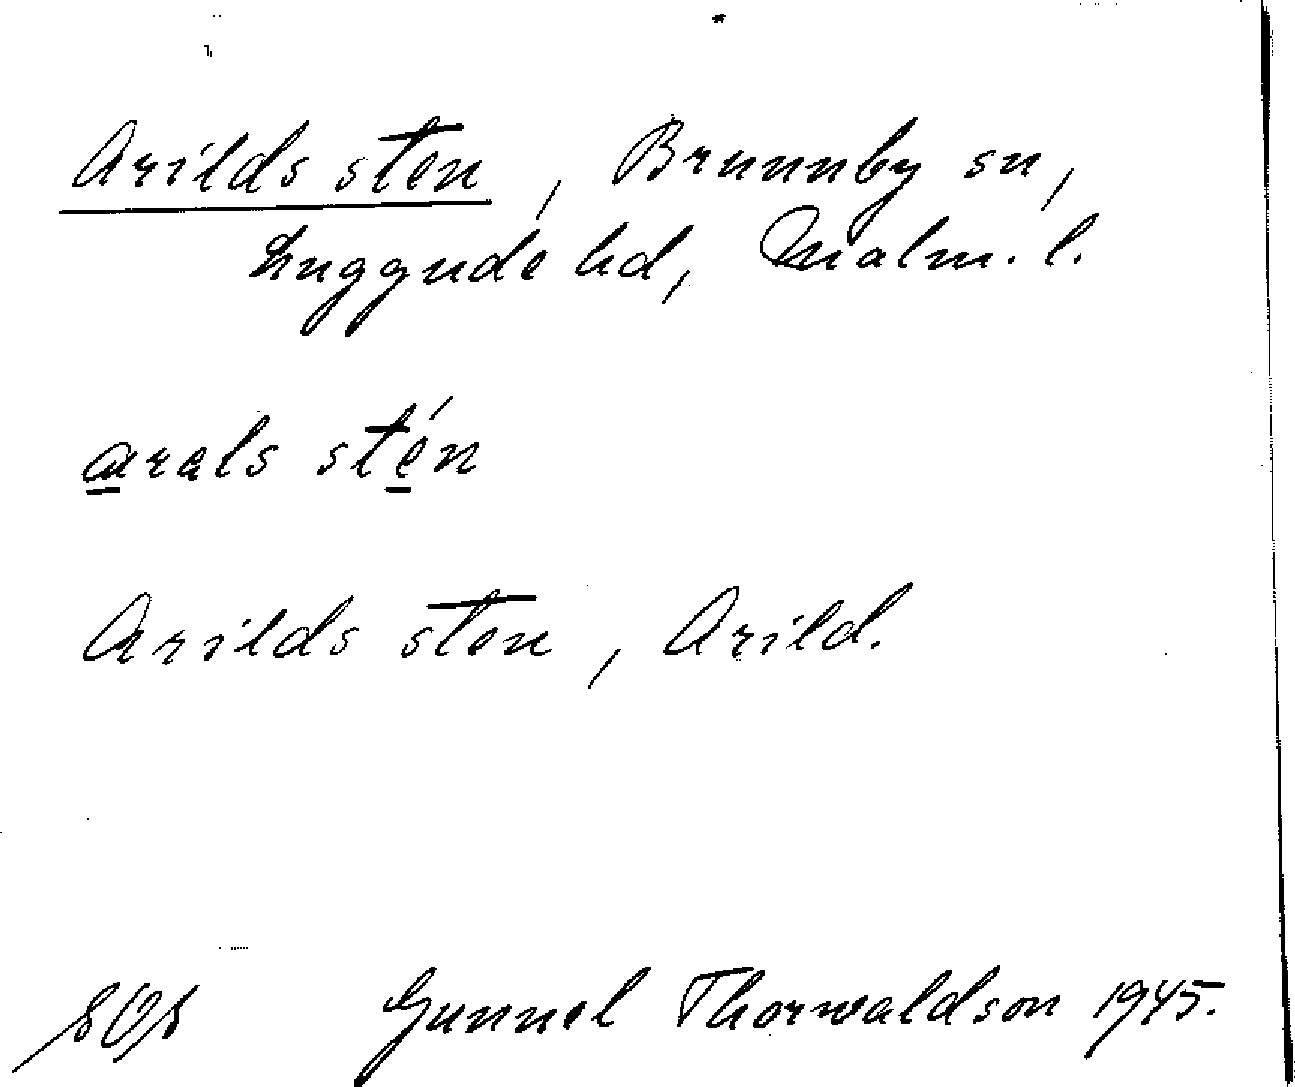 Arilds sten, Brunnby sn,
Luggude hd, Malm. l.
arals stén
Arilds sten, Arild.
Gunnel Thorwaldson 1945.